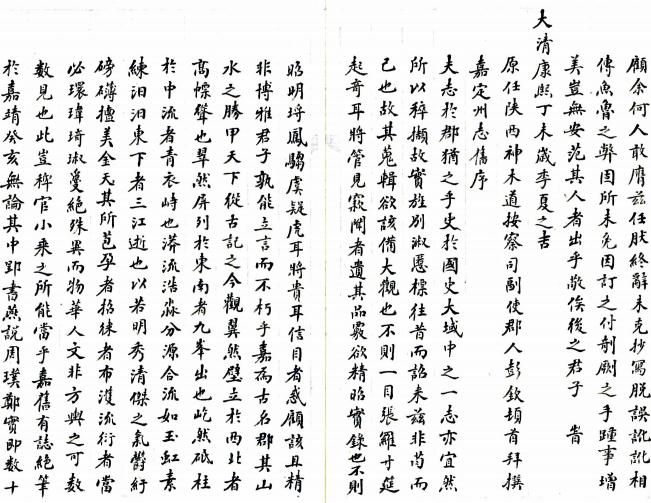 顧余何人敢膺茲任朕終辭未克抄寫脫誤訛訛相
傳魚魯之弊固所未免因訂之付剞劂之手踵事增
美豈無安范其人者出乎敬俟後之君子 峕
大清康熙丁未歲季夏之吉
原任陝西神木道按察司副使郡人彭欽頓首拜撰
嘉定州志舊序
夫志於郡猶之乎史於國史大域中之一志亦宜然
所以稡擷故實旌別淑慝標往昔而詔来茲非苟而
己也故其蒐輯欲該備大觀也不則一目張羅寸莛
起奇耳將管見寂聞者遺其品欲精昭實錄也不則
昭明埒鳳騶虞疑虎耳將貴耳信目者惑顧該且精
非博雅君子孰能立言而不朽乎嘉為古名郡其山
水之勝甲天下從古記之今觀翼然壁立於西北者
高幖聳也翠然屏列於東南者九峯出也屹然砥柱
於中流者青衣峙也漭流浩淼分源合流如玉虹素
練汨汨東下者三江逝也以若明秀清傑之氣鬱紆
磅礴擅美全天其所苞孕者招徠者布濩流衍者當
必瓌瑋琦淑夐絕殊異而物華人文非方輿之可數
數見也此豈稗官小乘之所能當乎嘉舊有誌絕筆
於嘉靖癸亥無論其中郢書燕說周璞鄭賓即數十